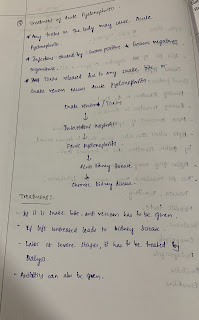 Treatment of Acute Pyelonephritis
* Any toxins in the body may cause Acute
Pyelonephritis
* Infections caused by Gram positive & Gram negative
organisms
* Toxins related due to any snake bite,
snake venom causes Acute Pyelonephritis
Snake venoms / Toxins
↓
Interstitial Nephritis
↓
Acute Pyelonephritis
↓
Acute kidney disease
↓
Chronic kidney disease.
Treatment:
- If it is snake bite, anti venom has to be given.
- If left untreated leads to kidney disease.
- Later at severe stages, it has to be treated by
Dialysis
- Antibiotics can also be given.